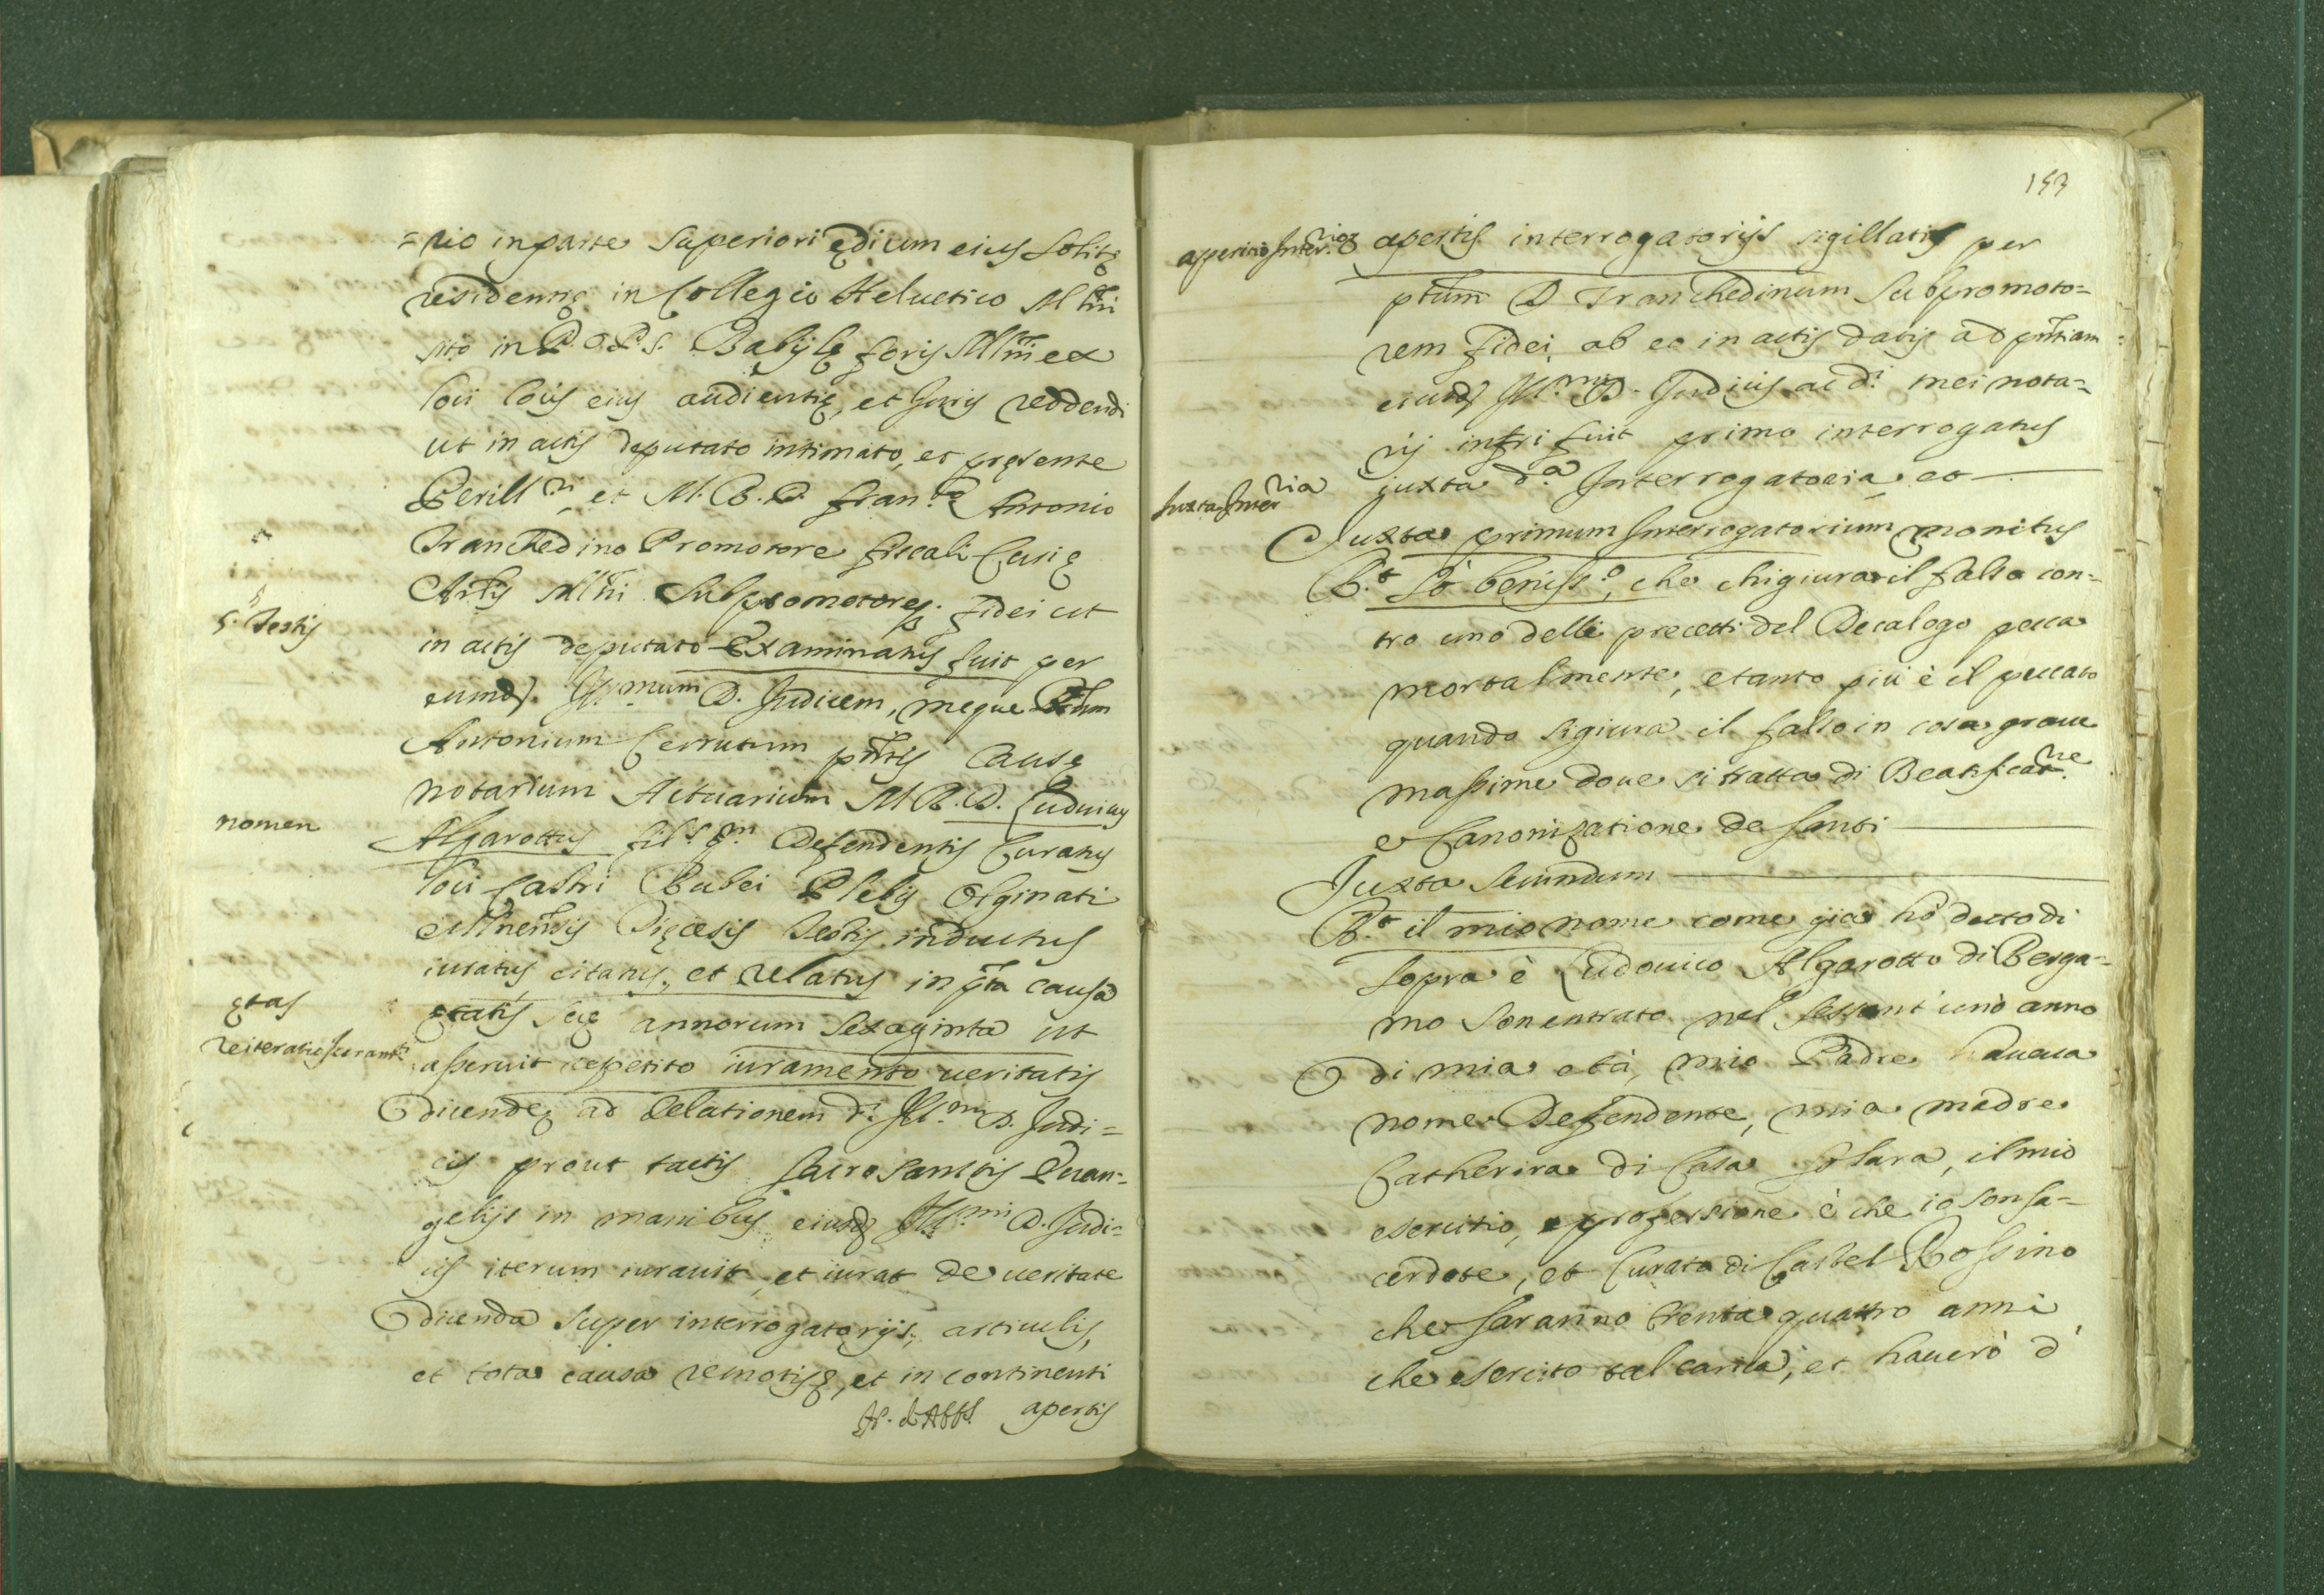 =rio in parte Superiori ędium eius Solitę
residentię in Collegio Helvetico Mlni
sito in P.O.P.S. Babijlę foris Mlni ex
loci lois eius audientię, et Juris reddendi
ut in actis deputato intimato, et pręsente
Perill.ri, et M.R.D. Fran.co Antonio
Tranchedino Promotore fiscali Curię
Archlis Mlni Subpromotore fidei ut
5.s Testis
in actis deputato Examinatus fuit per
eumd. Ill.mum D. Judicem, meque
Antonium Cerrutum pntis Causę
notarium Actuarium M.R.D. Luduicus
nomen
Algarottus fil.s q.m Defendentis Curatus
loci Castri Rubei Plebis Olginati
Mlnensis Dięcesis Testis inductus
iuratus, citatus, et relatus in pta causa
ętas
ętatis suę annorum Sexaginta ut
reiteratio Iurant.i
asseruit repetito iuramento veritatis
dicendę ad delationem d.i Ill.mi D. Judi=
cis prout tactis Sacrosanctis Evan=
gelijs in manibus eiusd. Ill.mi D. Judi=
cis iterum iuravit, et iurat de veritate
dicenda super interrogatorijs, articulis,
et tota causa remotisq, et in continenti
apertis
153
apertio Inter.rior
apertis interrogatorijs sigillatis per
ptum D Tranchedinum Subpromoto=
rem fidei, ab eo in actis datis ad pntiam
eiusd. Ill.mi D. Judicis ac d.i mei nota=
rij infri fuit primo interrogatus
Juxta Inter.ria
juxta d.a Interrogatoria et
Juxta primum Interrogatorium monitus
R.t Sò beniss.o, che chi giura il falso con=
tro uno delli precetti del Decalogo pecca
mortalmente, e tanto più è il peccato
quando si giura il falso in cosa grave
massime dove si tratta di Beatificat.ne
e Canonizatione de Santi
Juxta Secundum
R.t il mio nome come già hò detto di
sopra è Ludovico Algarotto di Berga=
mo son entrato nel sessant'uno anno
di mia età, mio Padre haveva
nome Defendente, mia madre
Catherina di Casa Solara, il mio
esercitio, e professione è che io son Sa=
cerdote, et Curato di Castel Rossino
che saranno trenta quattro anni
che esercito tal carica, et haverò d'